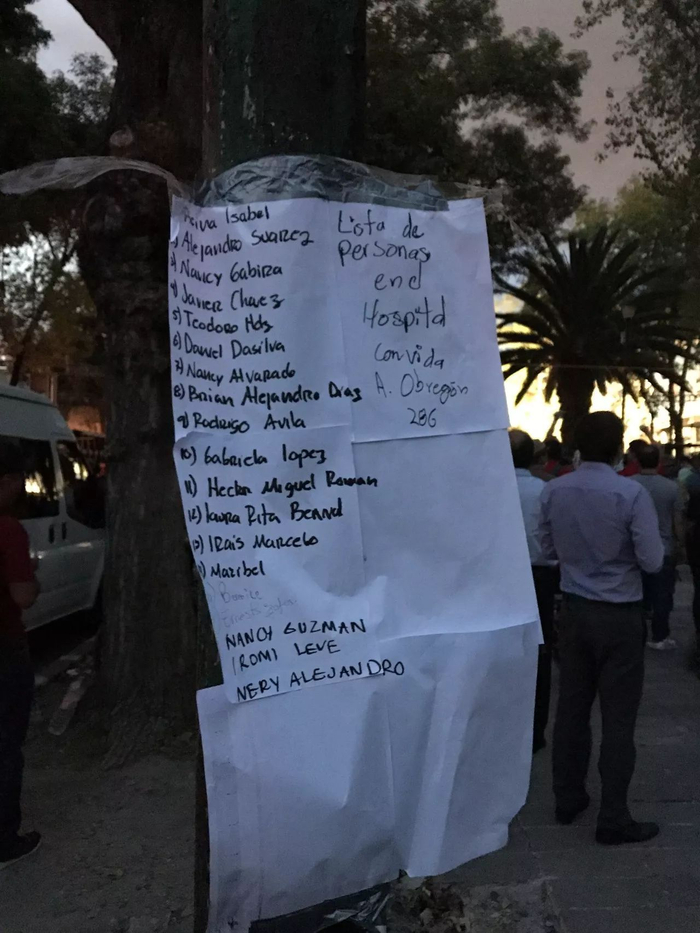 Isabel
Alejandro Suarez
3) Nancy Gabiza
4) Javier Chavez
5) Teodoro Hds
6) Daniel Dasilva
7) Nancy Alvarado
8) Brian Alejandro Dias
9) Rodrigo Avila
10) Gabriela lopez
11) Hector Miguel Roman
12) laura Rita
13) IRais Marcelo
Maribel
NANCY GUZMAN
IROMI LEVE
NERY ALEJANDRO
Lista de
personas
en el
Hospital
con vida
A. Obregón
286